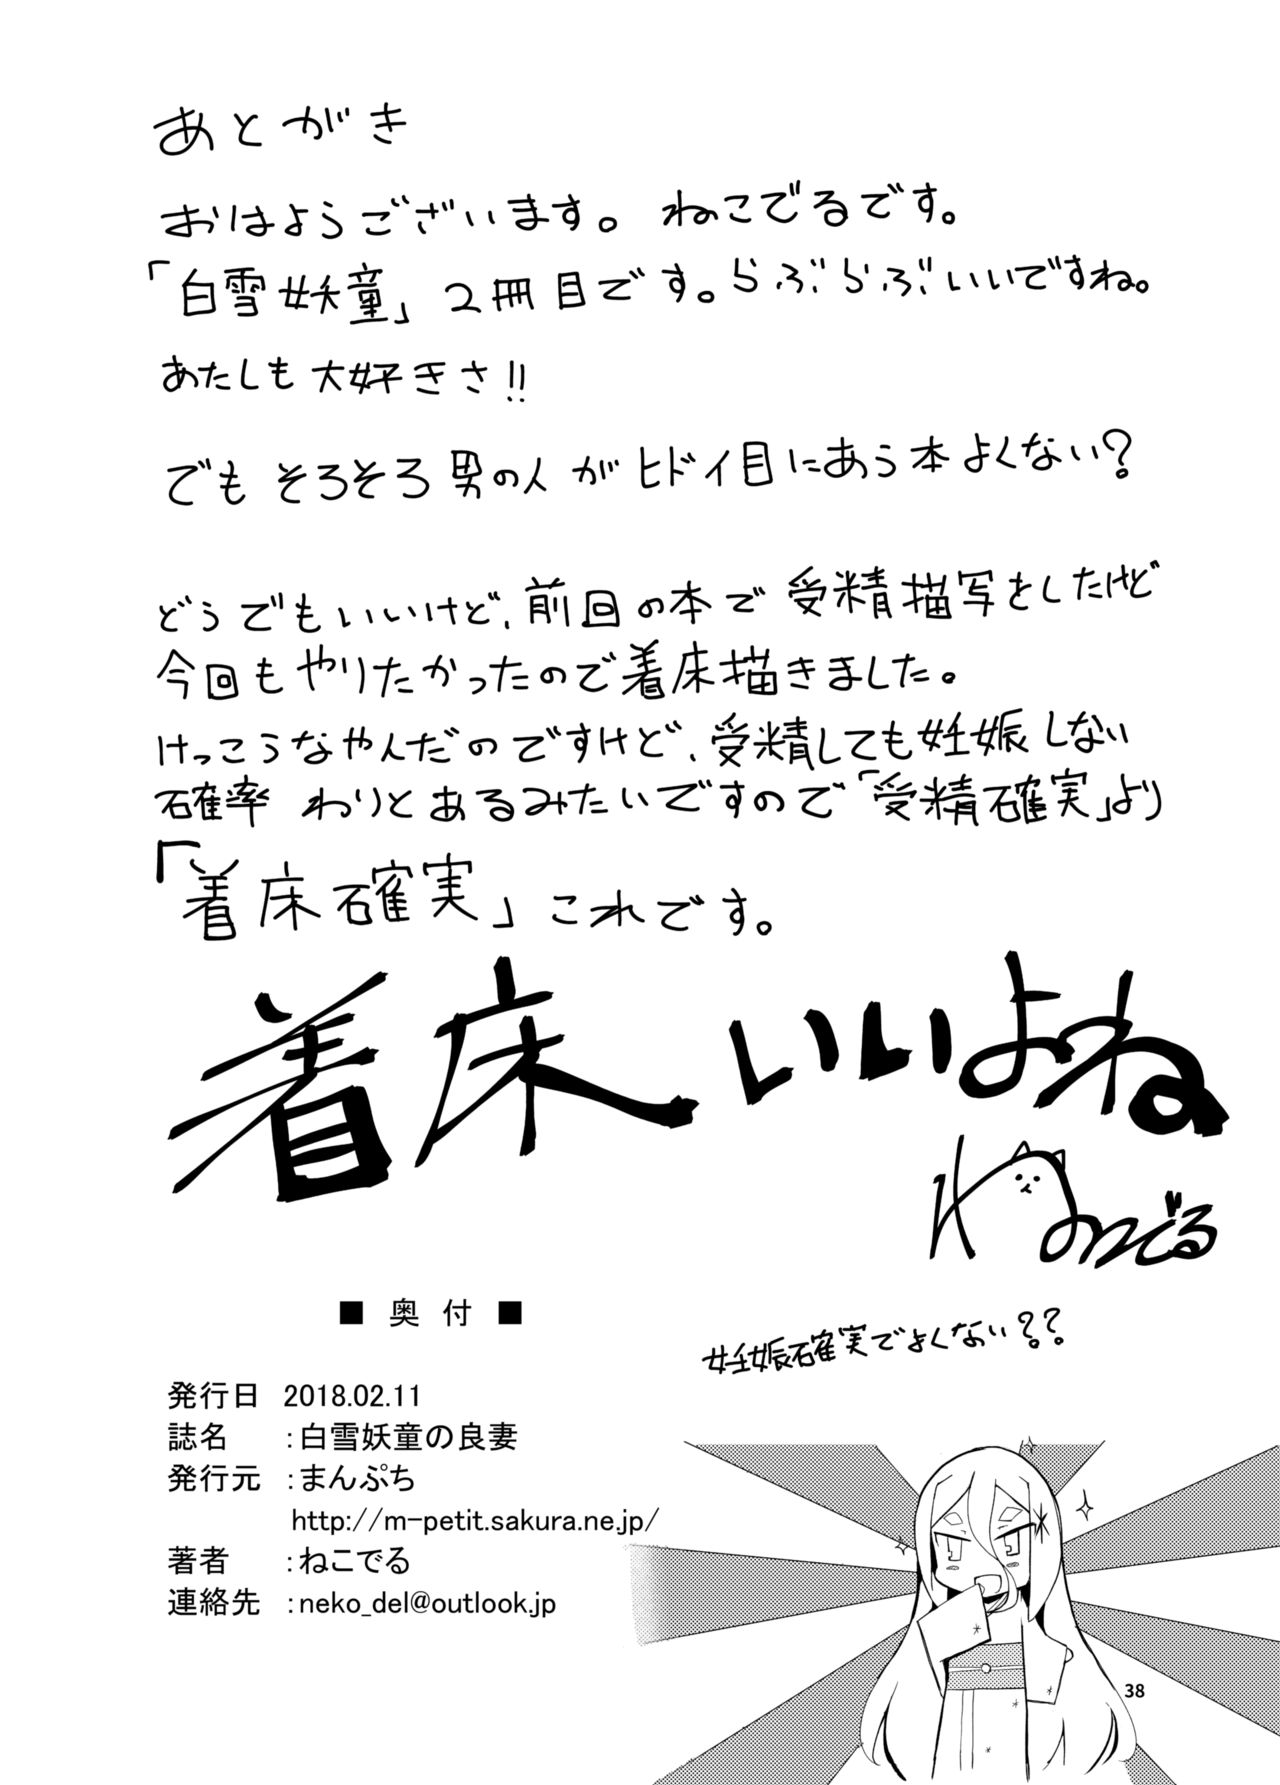 あとがき
おはようございます。ねこでるです。
「白雪妖童」2冊目です。らぶらぶいいですね。
あたしも大好きさ!!
でもそろそろ男の人がヒドイ目にあう本よくない？
どうでもいいけど、前回の本で受精描写をしたけど
今回もやりたかったので着床描きました。
けっこうなやんだのですけど、受精しても妊娠しない
確率わりとあるみたいですので「受精確実」より
「着床確実」これです。
着床いいよね
ねこでる
■ 奥 付 ■
妊娠確実でよくない？？
発行日 2018.02.11
誌名 ：白雪妖童の良妻
発行元 ：まんぷち
http://m-petit.sakura.ne.jp/
著者 ：ねこでる
連絡先 ：neko_del@outlook.jp
38